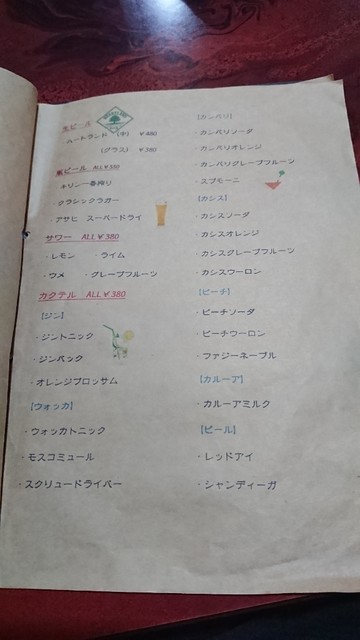 生ビール
ハートランド (中) ￥480
(グラス) ￥380
瓶ビール ALL￥550
キリン一番搾り
クラシックラガー
アサヒ スーパードライ
サワー ALL￥380
・レモン ・ライム
・ウメ ・グレープフルーツ
カクテル ALL￥380
【ジン】
・ジントニック
・ジンバック
・オレンジブロッサム
【ウォッカ】
・ウォッカトニック
・モスコミュール
・スクリュードライバー
【カンパリ】
・カンパリソーダ
・カンパリオレンジ
・カンパリグレープフルーツ
・スプモーニ
【カシス】
・カシスソーダ
・カシスオレンジ
・カシスグレープフルーツ
・カシスウーロン
【ピーチ】
・ピーチソーダ
・ピーチウーロン
・ファジーネーブル
【カルーア】
・カルーアミルク
【ビール】
・レッドアイ
・シャンディーガ